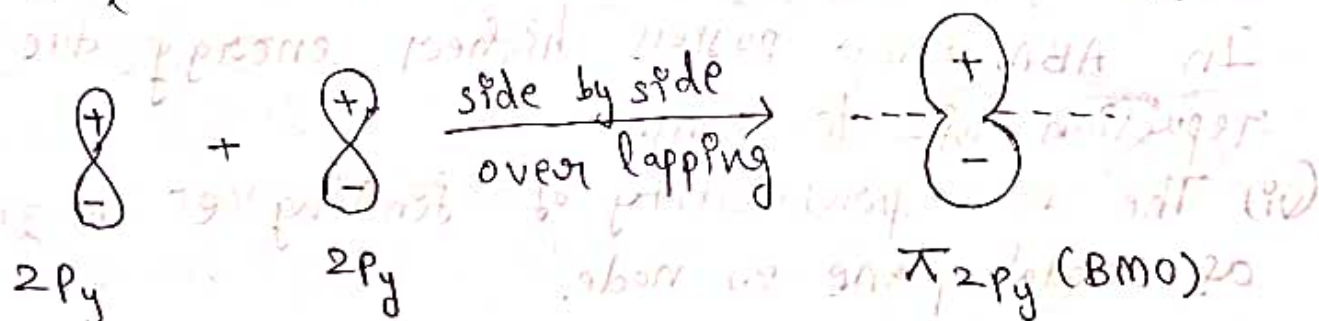 side by side
+ + + →
over lapping
+
- - -
2Py 2Py π2Py (BMO)